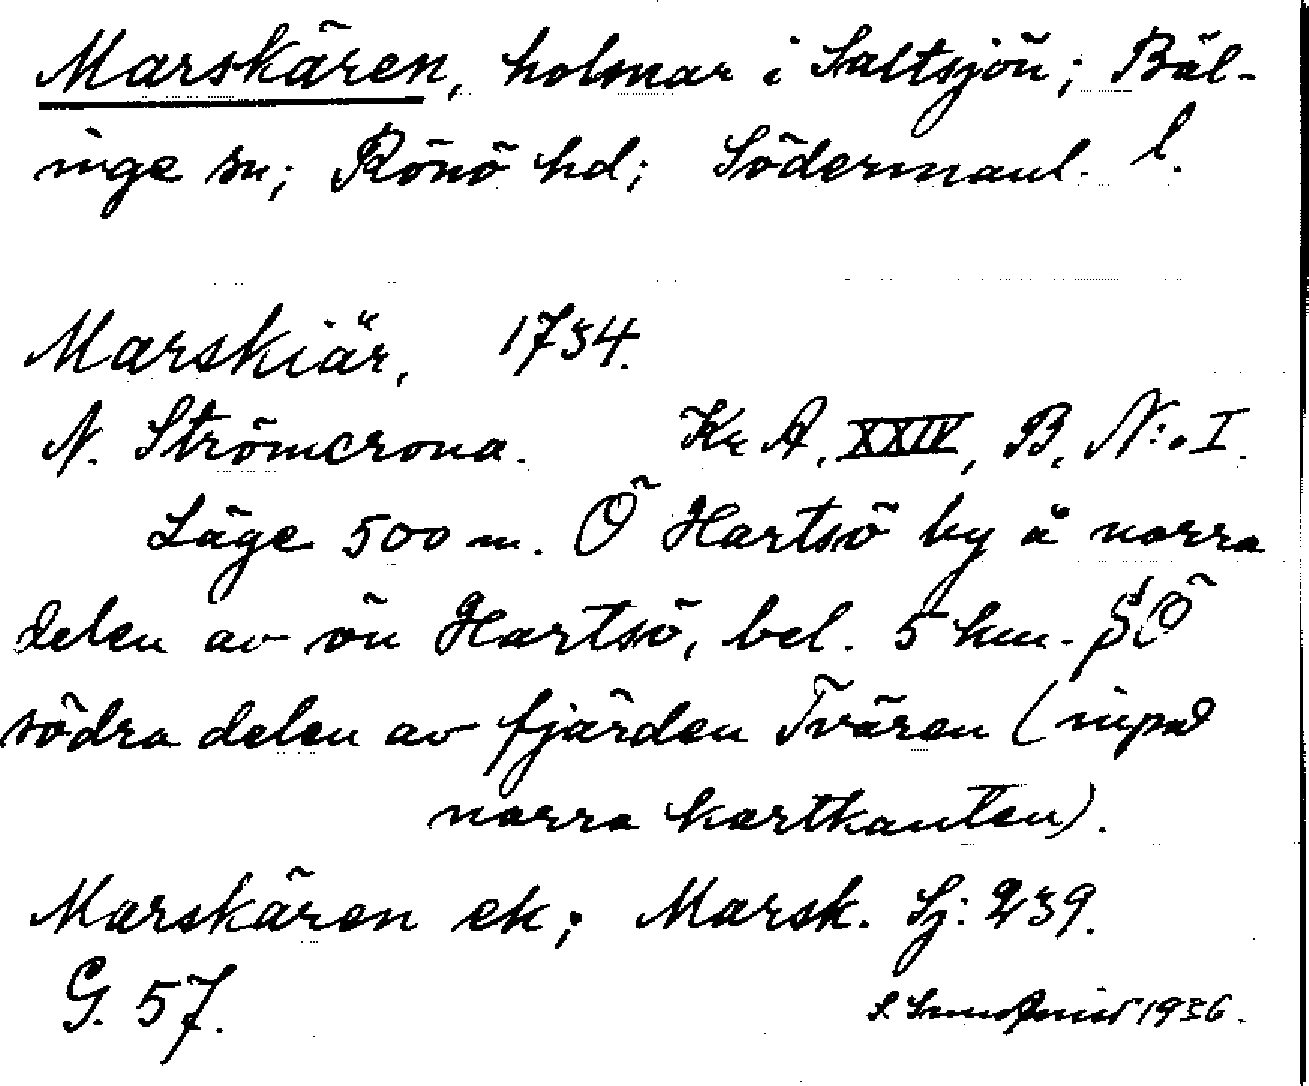 Marskären, holmar i Saltsjön; Bäl-
inge sn; Rönö hd; Södermanl. l.
Marskiär, 1734.
N. Strömcrona. Kr A, XXIV, B, N:o I.
Läge 500 m. Ö Hartsö by å norra
delen av ön Hartsö, bel. 5 km. SÖ
södra delen av fjärden Tvären (inpå
norra kartkanten).
Marskären ek; Marsk. Sj: 239.
G. 57.
1936.